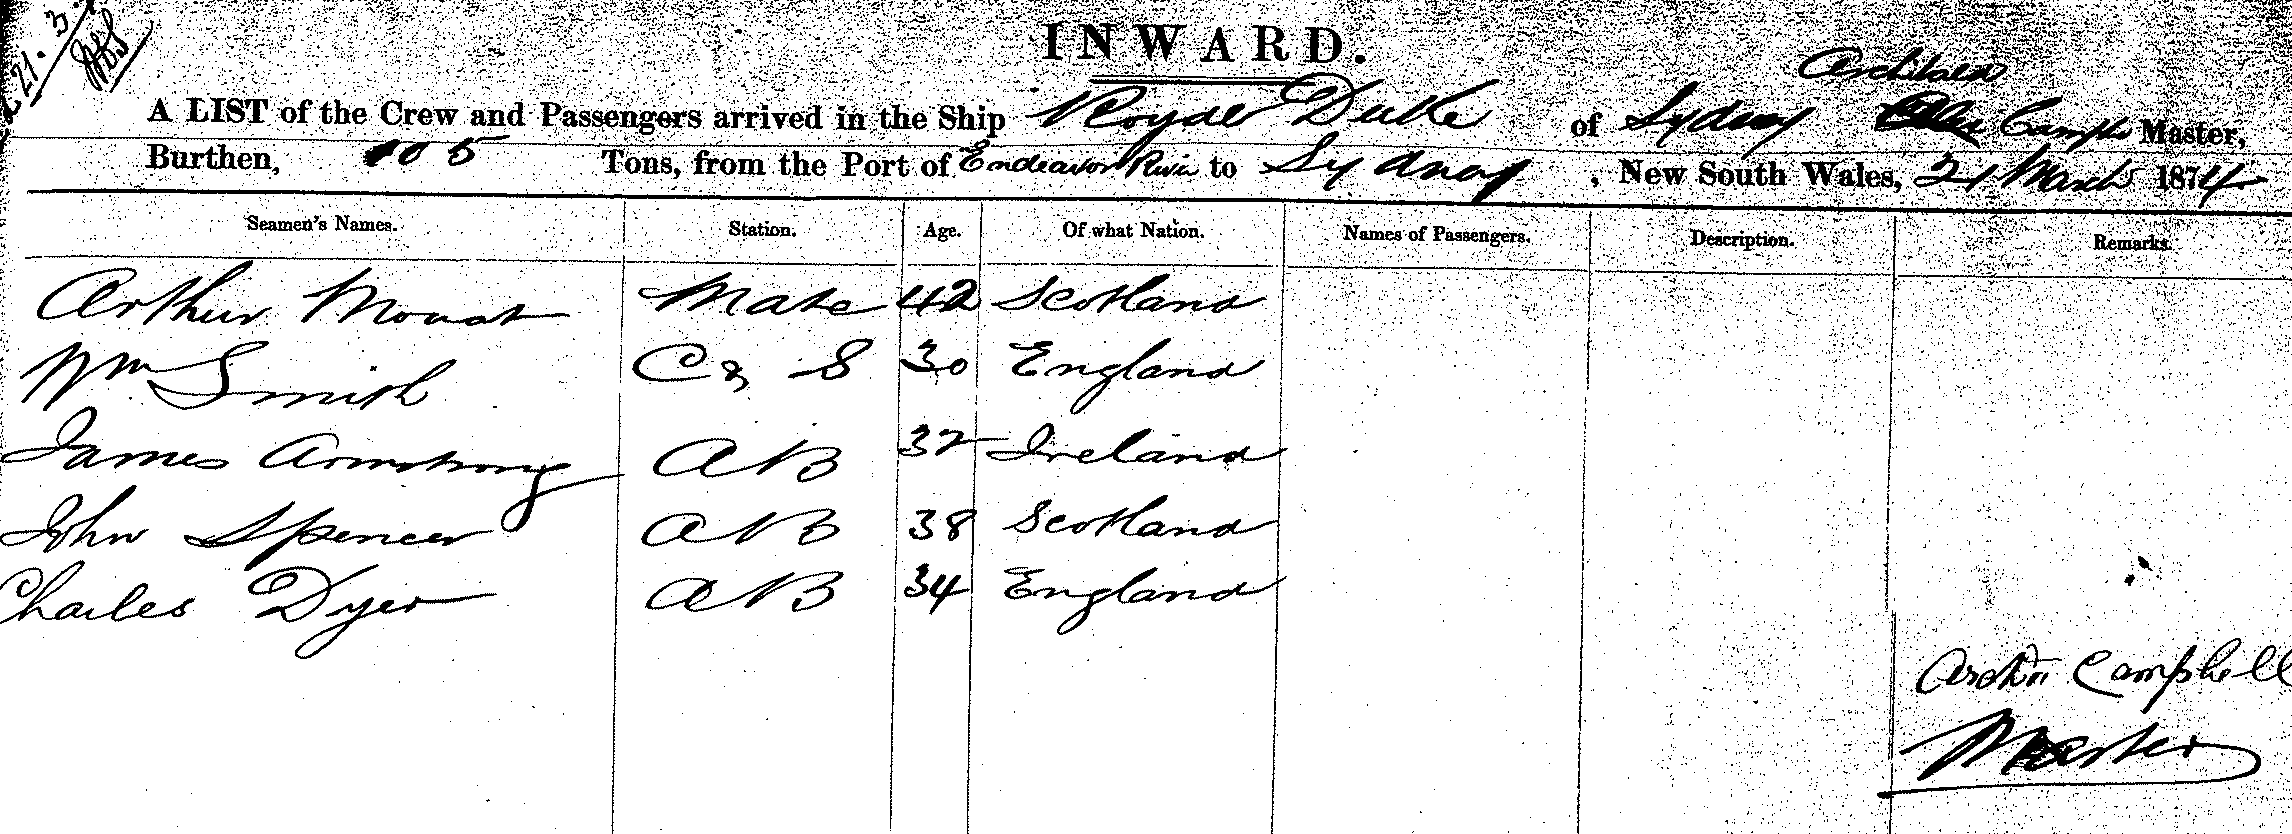 21. 3.
INWARD.
Archibald
A LIST of the Crew and Passengers arrived in the Ship Royal Duke of Sydney Campbe Master,
Burthen, 105 Tons, from the Port of Endeavor River to Sydney, New South Wales, 21 March 1874
Seamen's Names. Station. Age. Of what Nation. Names of Passengers. Description. Remarks.
Arthur Mouat Mate 42 Scotland
Wm Smith C & S 30 England
James Armstrong AB 32 Ireland
John Spencer AB 38 Scotland
Charles Dyer AB 34 England
Campbell
Master